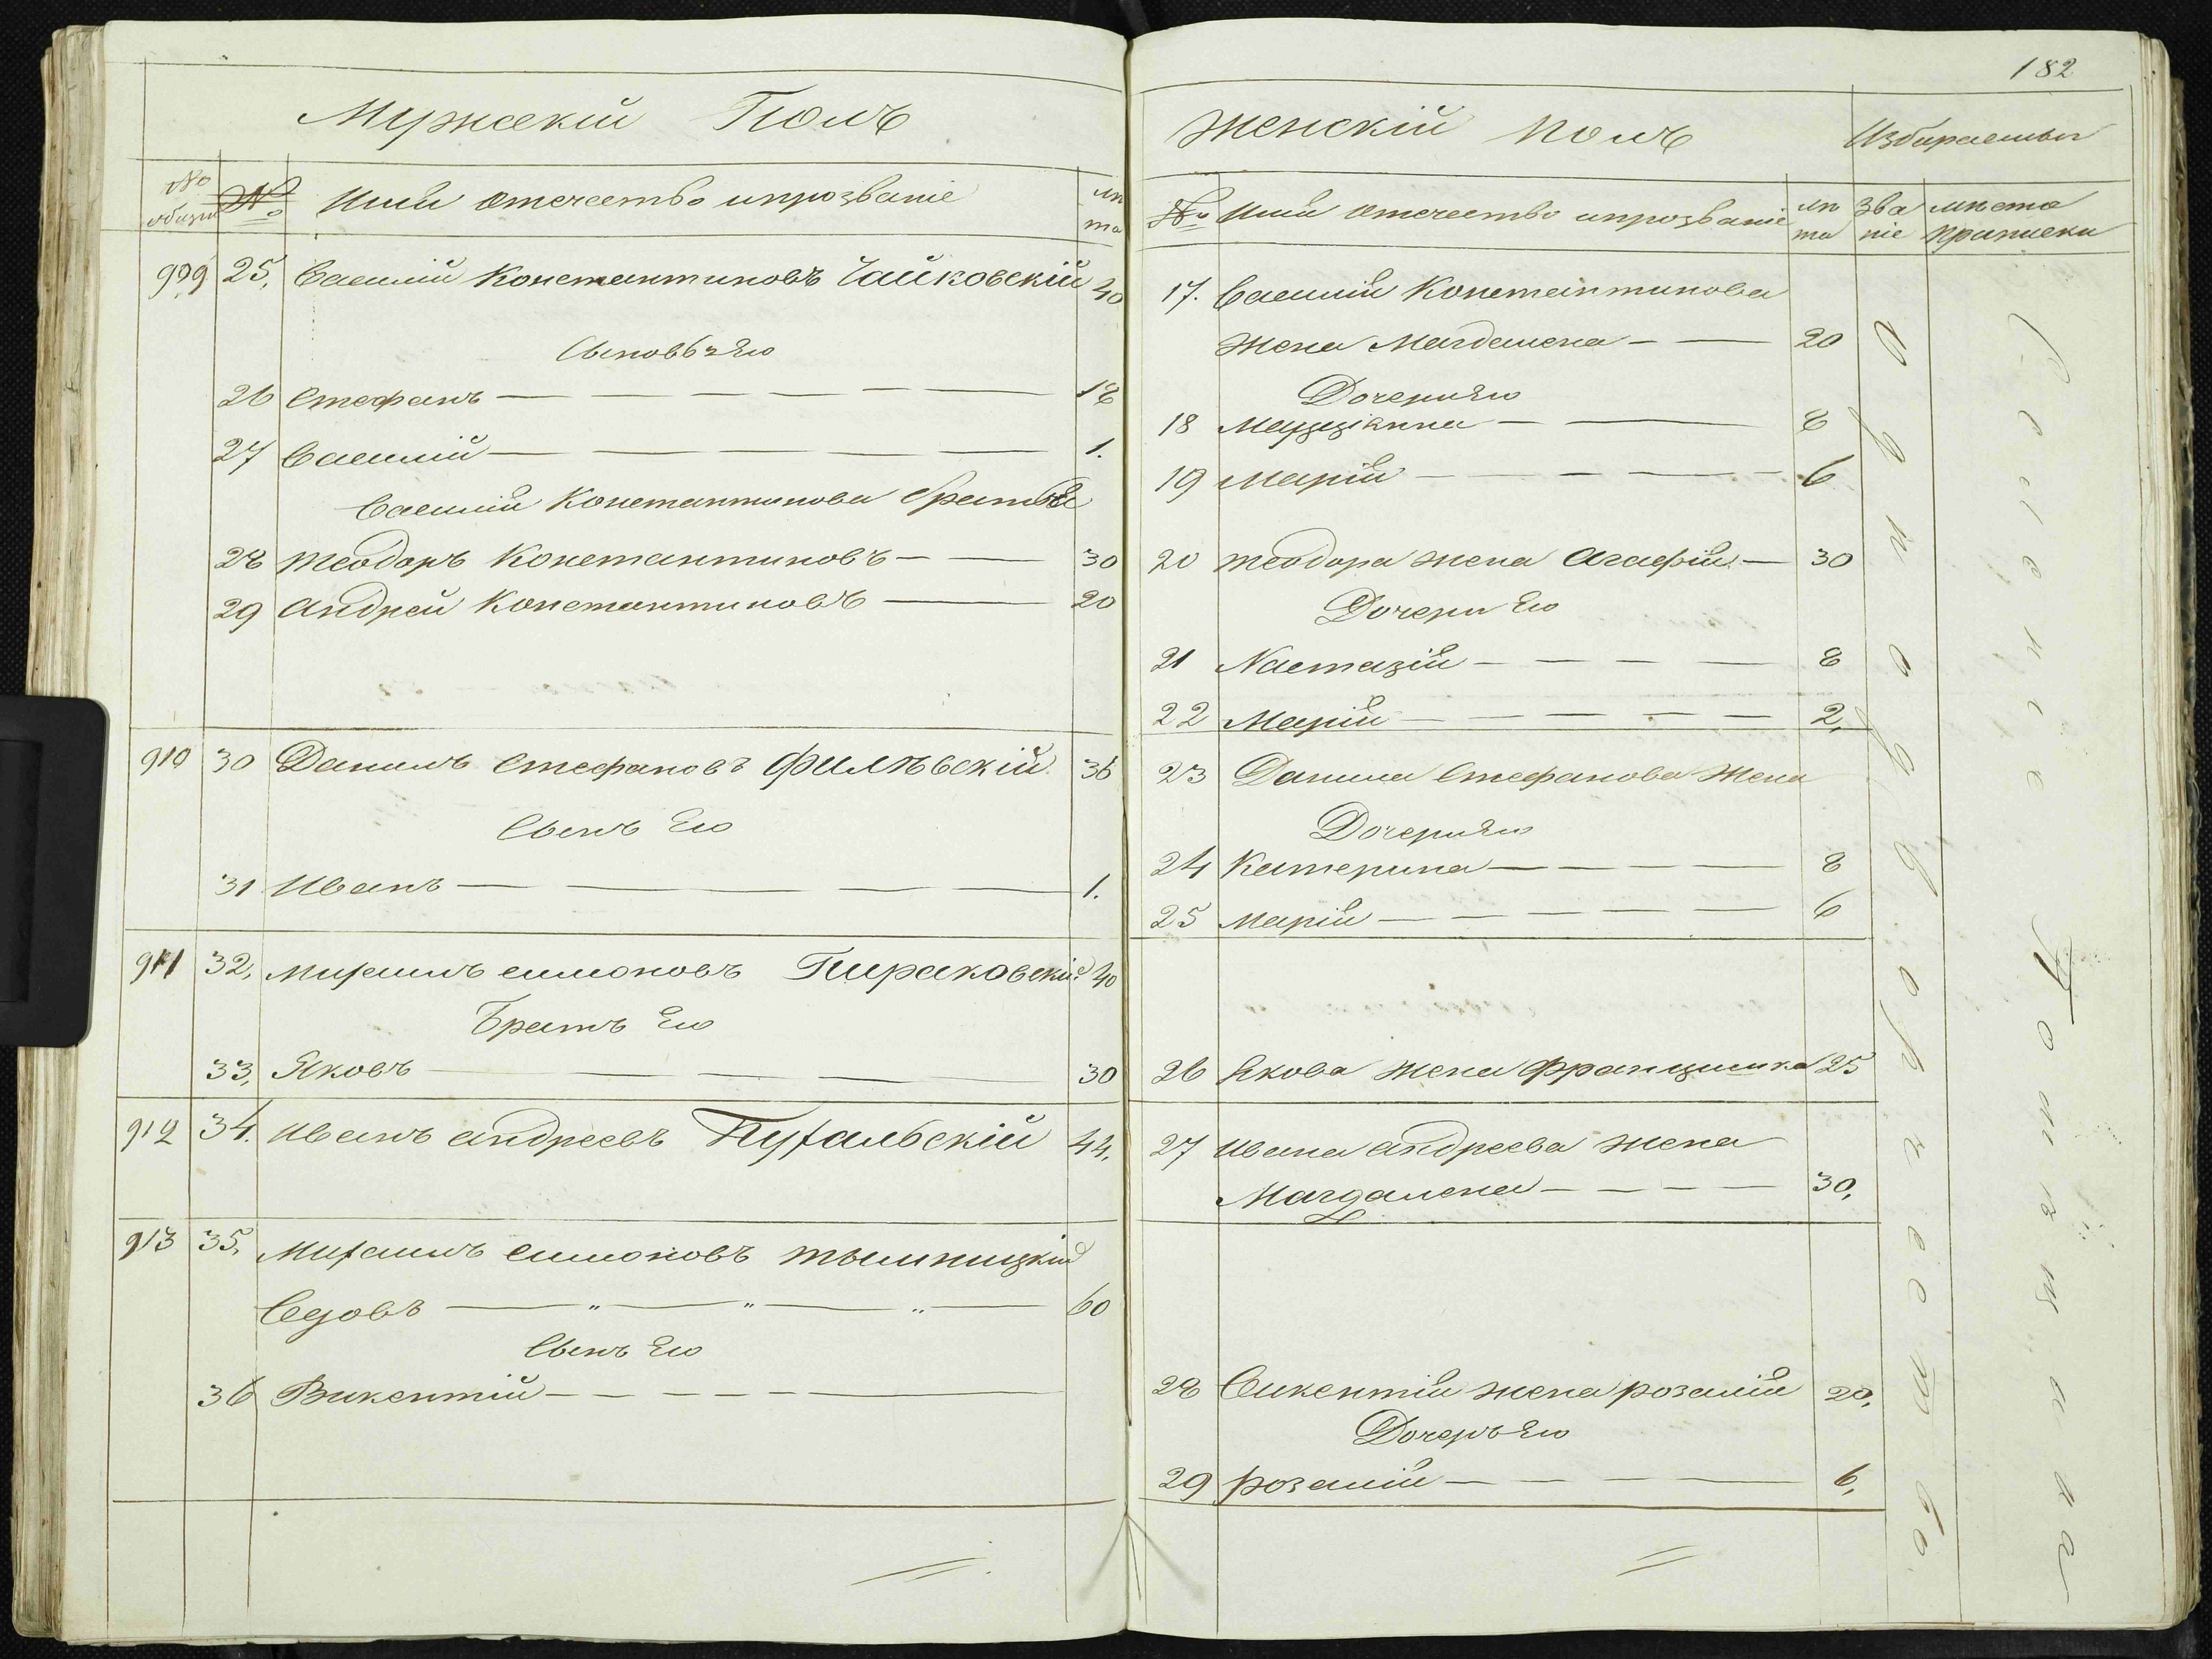 182
Мужескій Полъ
№ общій
№
Имя отечество и прозваніе
лѣта
909 25, Василій Константиновъ Чайковскій 40
Сыновья Его
26 Стефанъ — — — — — 18
27 Василій — — — — — 1.
Василія Константинова братья
28 Теодоръ Константиновъ — — 30
29 Андрей Константиновъ — 20
910 30 Данилъ Стефановъ Филѣвскій 36
Сынъ Его
31 Иванъ — — — — 1.
911 32, Михаилъ Симоновъ Пираковскій 40
Братъ Его
33, Яковъ — — — 30
912 34. Иванъ Андреевъ Пухальскій 44,
913 35, Михаилъ Симоновъ Тышницкій
Вдовъ — „ — „ — „ — 60
Сынъ Его
36 Викентій — — — — — —
Женскій полъ
Избираемыя
№ Имя отечество и прозваніе
лѣта
званіе
мѣста приписки
17. Василія Константинова
Жена Магдалена — — 20
Дочери Его
18 — — 8
19 Марія — — — — 6
20 Теодора жена Агафія — 30
Дочери Его
21 Настазія — — — — 8
22 Марія — — — — — 2,
23 Данила Стефанова Жена
Дочери Его
24 Катерина — — — — 8
25 Марія — — — — — 6
26 Якова жена Францишка 25
27 Ивана Андреева жена
Магдалена — — — — 30,
28 Викентія жена розалія 20,
Дочерь Его
29 розалія — — — — 6,
Однодворчество
Селеніе